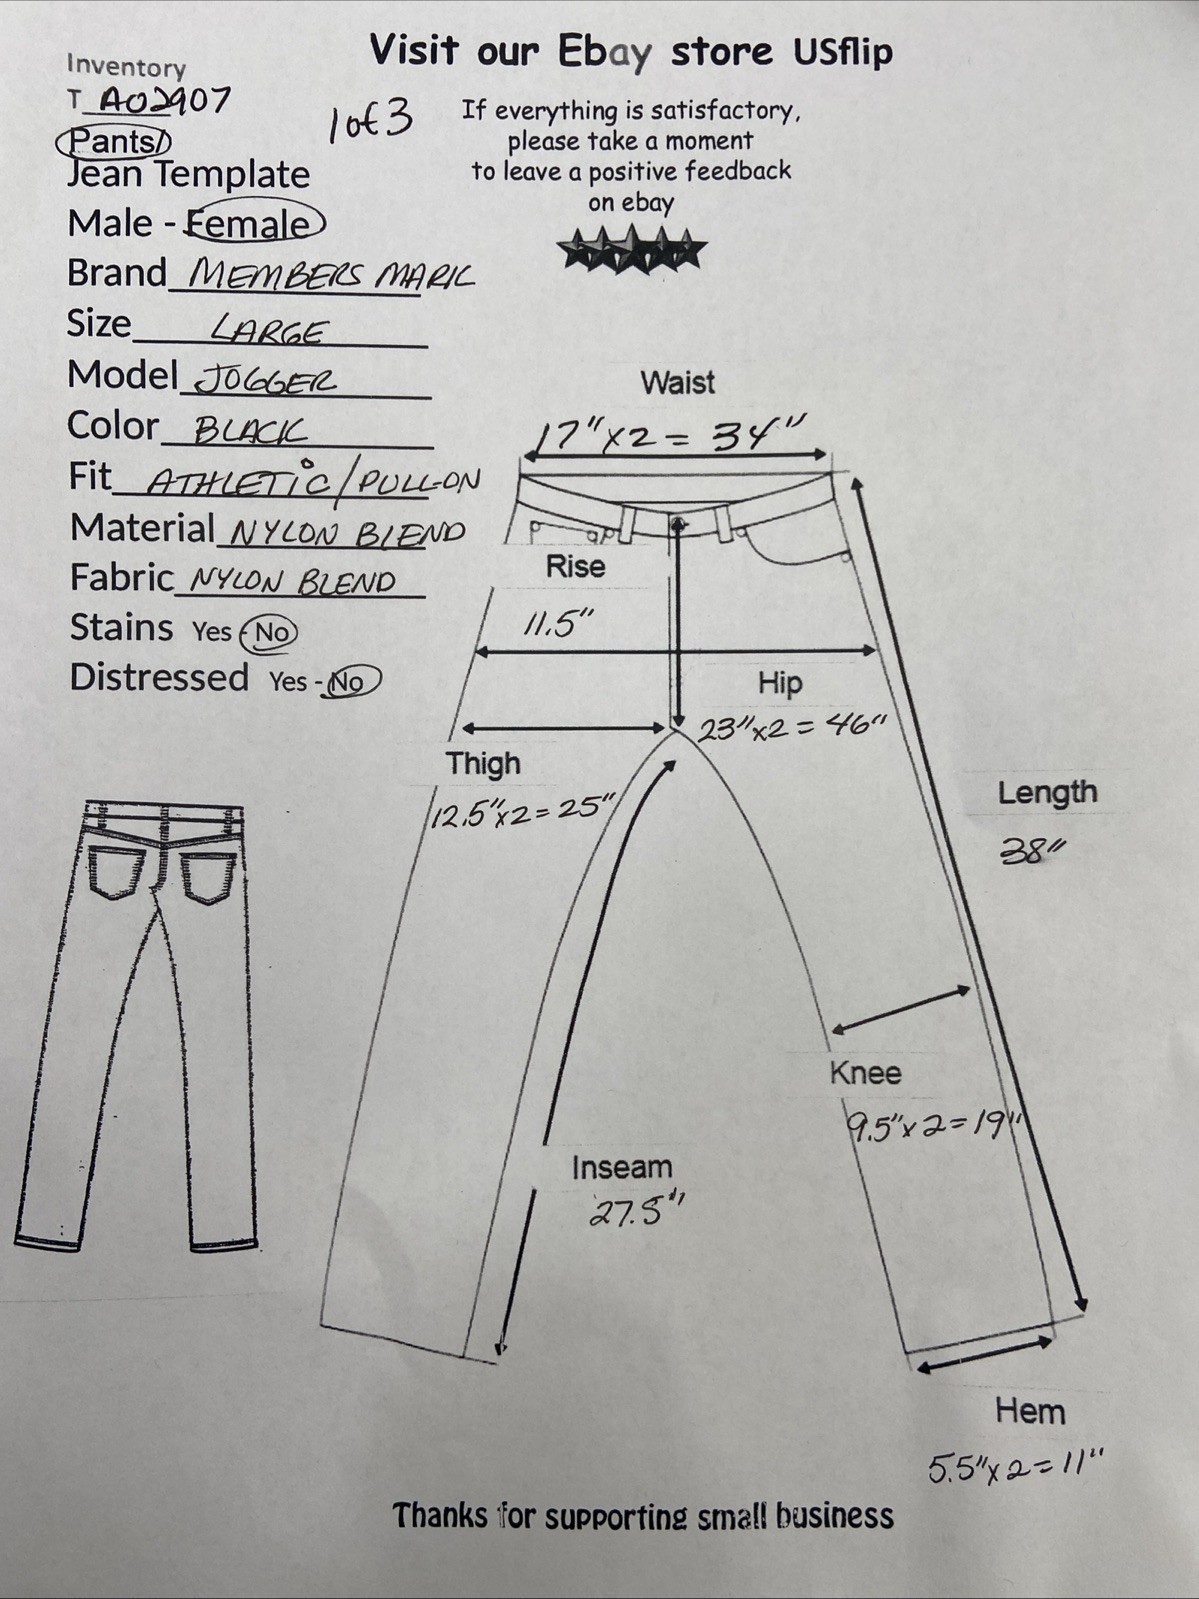 Visit our Ebay store USflip
Inventory
T A02907
1 of 3
Pants/
Jean Template
Male - Female
Brand MEMBERS MARK
Size LARGE
Model JOGGER
Color BLACK
Fit ATHLETIC/PULL-ON
Material NYLON BLEND
Fabric NYLON BLEND
Stains Yes - No
Distressed Yes - No
If everything is satisfactory,
please take a moment
to leave a positive feedback
on ebay
Waist
17"x2 = 34"
Rise
11.5"
Hip
23"x2 = 46"
Thigh
12.5"x2=25"
Length
38"
Knee
9.5"x2=19"
Inseam
27.5"
Hem
5.5"x2=11"
Thanks for supporting small business